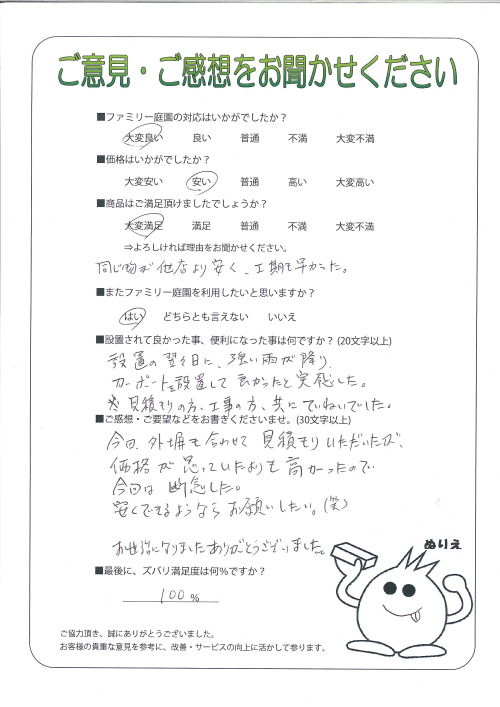 ご意見・ご感想をお聞かせください
■ファミリー庭園の対応はいかがでしたか？
大変良い 良い 普通 不満 大変不満
■価格はいかがでしたか？
大変安い 安い 普通 高い 大変高い
■商品はご満足頂けましたでしょうか？
大変満足 満足 普通 不満 大変不満
⇒よろしければ理由をお聞かせください。
同じ物が他店より安く、工期も早かった。
■またファミリー庭園を利用したいと思いますか？
はい どちらとも言えない いいえ
■設置されて良かった事、便利になった事は何ですか？(20文字以上)
設置の翌日に、強い雨が降り、
カーポートを設置して良かったと実感した。
※見積もりの方、工事の方、共にていねいでした。
■ご感想・ご要望などをお書きくださいませ。(30文字以上)
今回、外塀も合わせて見積もりいただいたが、
価格が思っていたよりも高かったので
今回は断念した。
安くできるようならお願いしたい。(笑)
お世話になりましたありがとうございました。
ぬりえ
■最後に、ズバリ満足度は何％ですか？
100 %
ご協力頂き、誠にありがとうございました。
お客様の貴重な意見を参考に、改善・サービスの向上に活かして参ります。